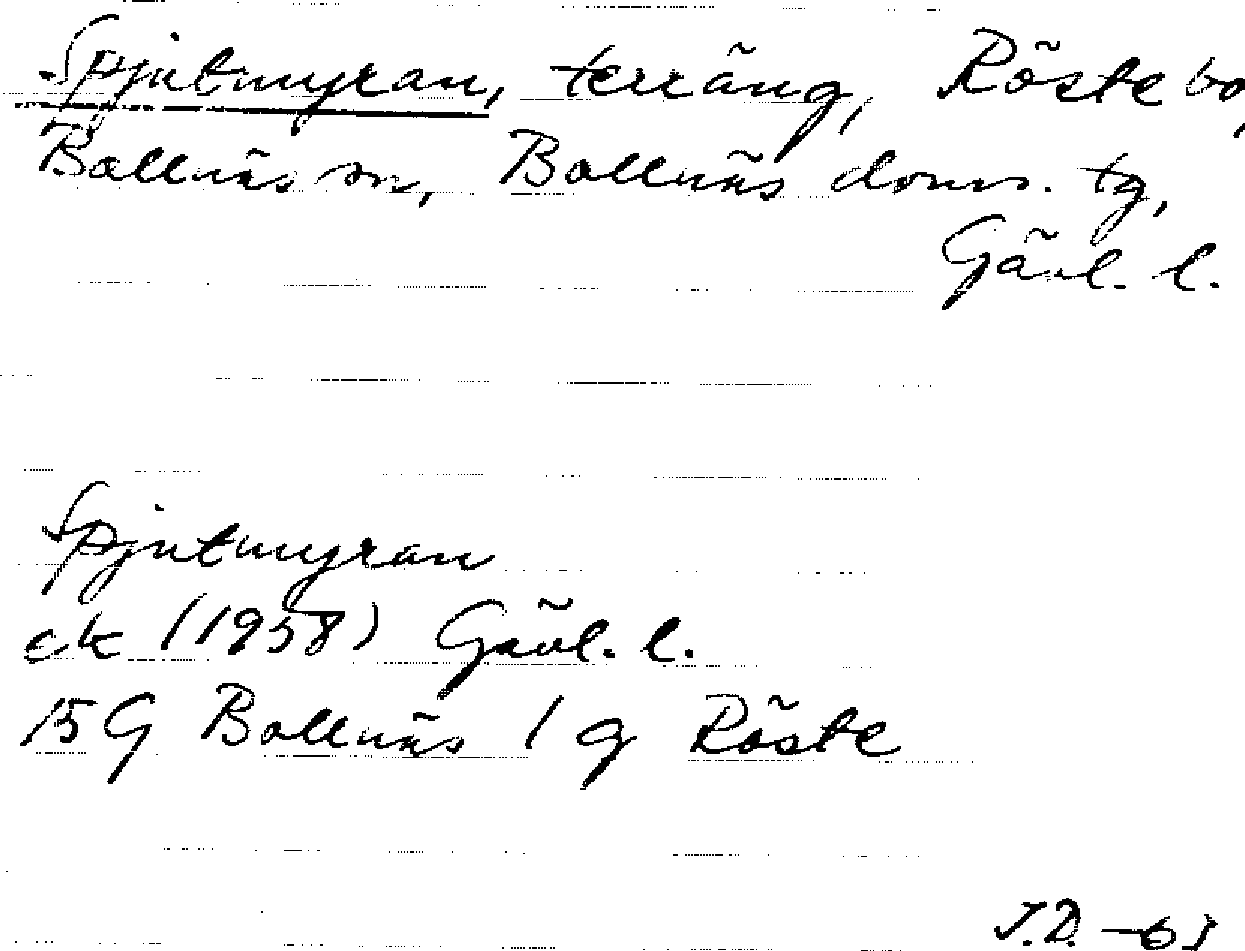 Spjutmyran, terräng, Röstebo,
Bollnäs sn, Bollnäs doms. tg,
Gävl. l.
Spjutmyran
ek (1958) Gävl. l.
15G Bollnäs 1 g Röste
J.D. -65